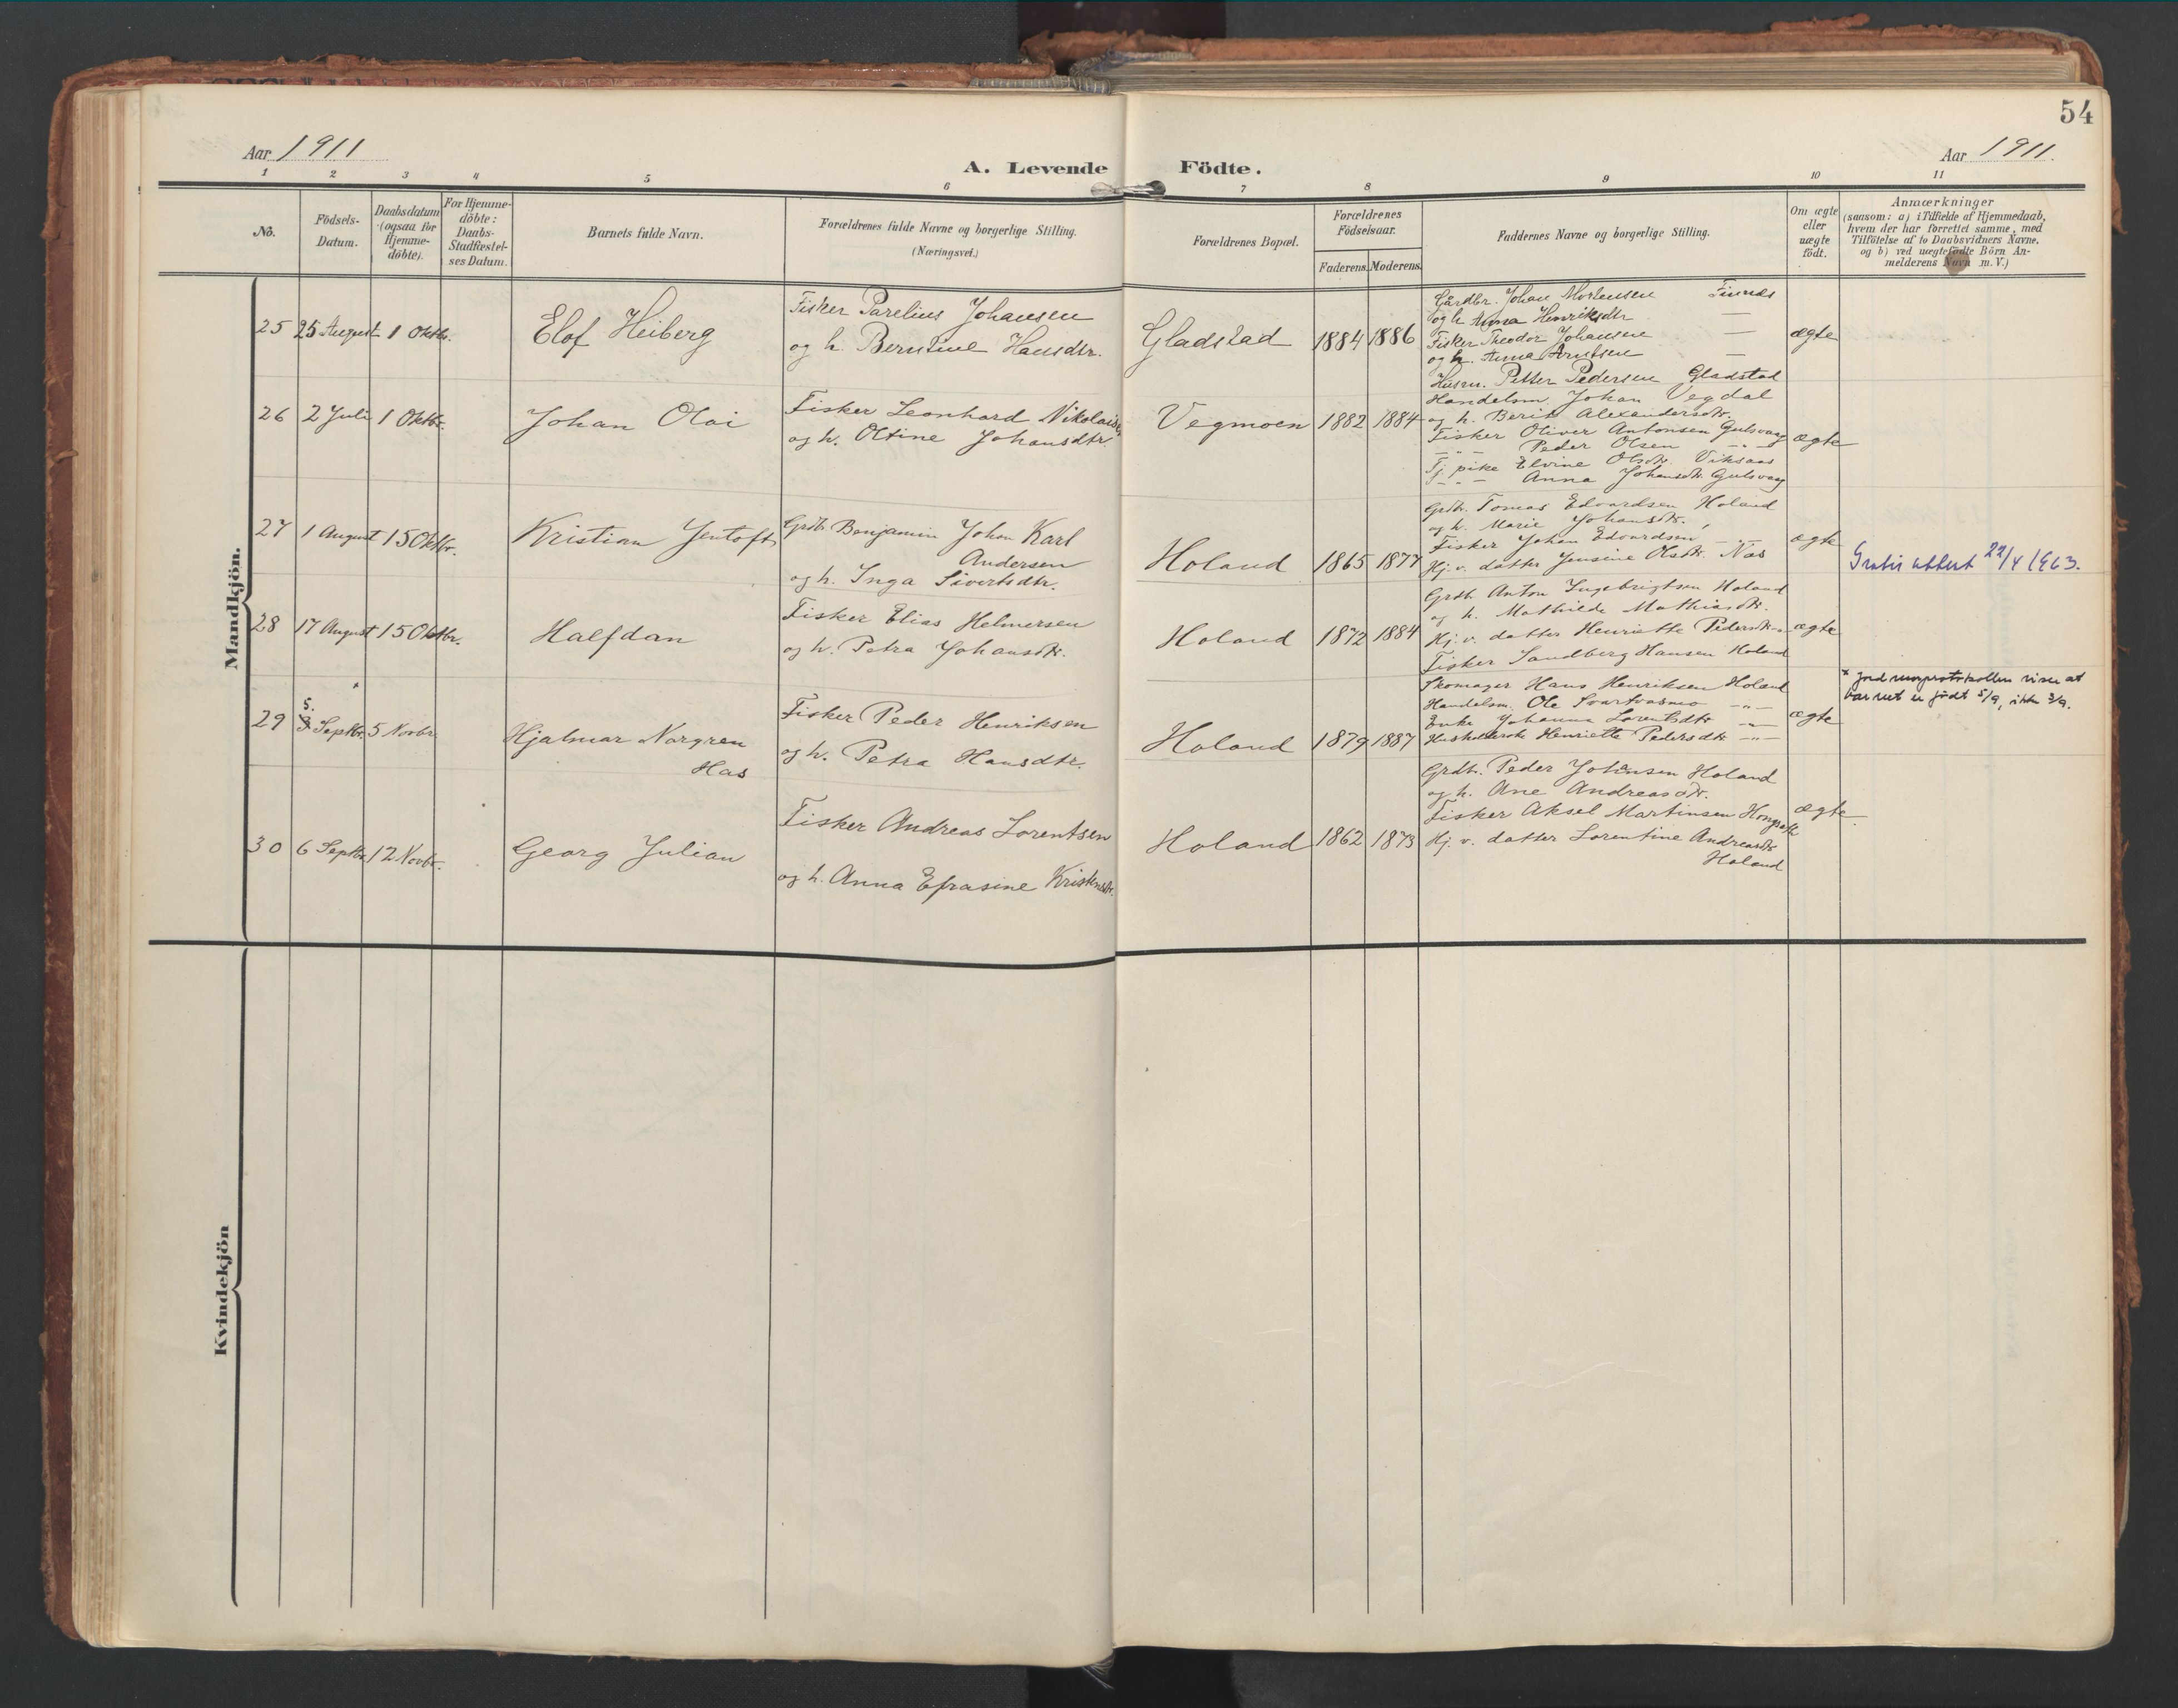 54
Aar 1911
A. Levende Födte.
Aar 1911.
1 2 3 4 5 6 7 8 9 10 11
No.
Födsels-
Datum.
Daabsdatum
(ogsaa for
Hjemme-
döbte).
For Hjemme-
döbte:
Daabs-
Stadfæstel-
ses Datum.
Barnets fulde Navn.
Forældrenes fulde Navne og borgerlige Stilling.
(Næringsvei.)
Forældrenes Bopæl.
Forældrenes
Födselsaar.
Faderens. Moderens.
Faddernes Navne og borgerlige Stilling.
Om ægte
eller
uægte
födt.
Anmærkninger
(saasom: a) i Tilfælde af Hjemmedaab,
hvem der har forrettet samme, med
Tilföielse af to Daabsvidners Navne,
og b) ved uægtefödte Börn An-
melderens Navn m. V.)
Mandkjön.
25 25 August 1 Oktbr. Elof Heiberg
Fisker Parelius Johansen
og h. Berntine Hansdtr.
Gladstad 1884 1886
Gårdbr. Johan Mortensen Finnes
og h. Anna Henriksdtr —
Fisker Theodor Johansen —
og h. Anna Arntsen —
Husm. Petter Pedersen Gladstad
ægte
26 2 Juli 1 Oktbr. Johan Olai
Fisker Leonhard Nikolaisen
og h. Oltine Johansdtr.
Vegmoen 1882 1884
Handelsm. Johan Vegdal
og h. Berit Alexandersdtr.
Fisker Oliver Antonsen Gulsvaag
-"- Peder Olsen -"-
Tj. pike Elvine Olsdtr. Viksaas
T- "- Anna Johansdtr. Gulsvaag
ægte
27 1 August 15 Oktbr. Kristian Jentoft
Grdbr. Benjamin Johan Karl
Andersen
og h. Inga Sivertsdtr.
Holand 1865 1877
Grdb. Tomas Edvardsen Holand
og h. Marie Johansdtr.
Fisker Johan Edvardsen -"-
Hj. v. datter Jensine Olsdtr. Nes
ægte
Gratis attest 22/4 1963.
28 17 August 15 Oktbr. Halfdan
Fisker Elias Helmersen
og h. Petra Johansdtr.
Holand 1872 1884
Grdb. Anton Ingebrigtsen Holand
og h. Mathilde Mathiasdtr.
Hj. v. datter Henriette Pedersdtr. -"-
Fisker Sandberg Hansen Holand
ægte
29 5. 3 Septbr. * 5 Novbr. Hjalmar Norgren
Has
Fisker Peder Henriksen
og h. Petra Hansdtr.
Holand 1879 1887
Skomager Hans Henriksen Holand
Handelsm. Ole Svartvasmo -"-
Enke Johanna Lorentsdtr -"-
Husholderske Henriette Pedersdtr -"-
ægte
* Jordmorprotokollen viser at
barnet er født 5/9, ikke 3/9.
30 6 Septbr. 12 Novbr. Georg Julian
Fisker Andreas Lorentsen
og h. Anna Efrasine Kristensdtr.
Holand 1862 1873
Grdb. Peder Johansen Holand
og h. Ane Andreasdtr.
Fisker Aksel Martinsen
Hj. v. datter Lorentine Andreasdtr
Holand
ægte.
Kvindekjön